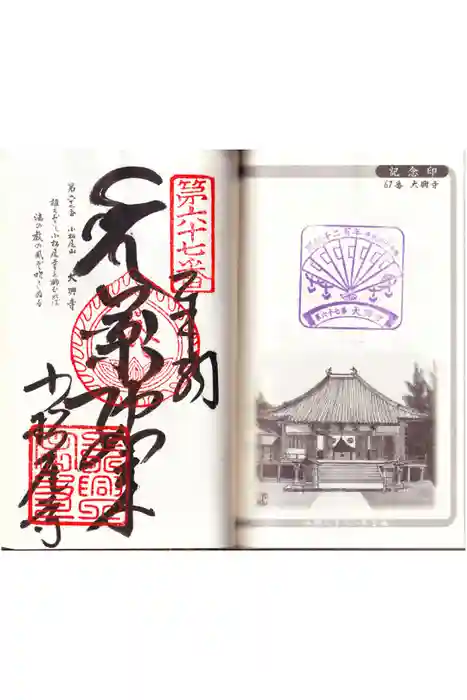 第六十七番
奉納
薬師如来
小松尾寺
第六十七番 小松尾山 大興寺
植ゑおきし小松尾寺を眺むれば
法の教の風ぞ吹きぬる
記念印
67番 大興寺
第六十七番 大興寺